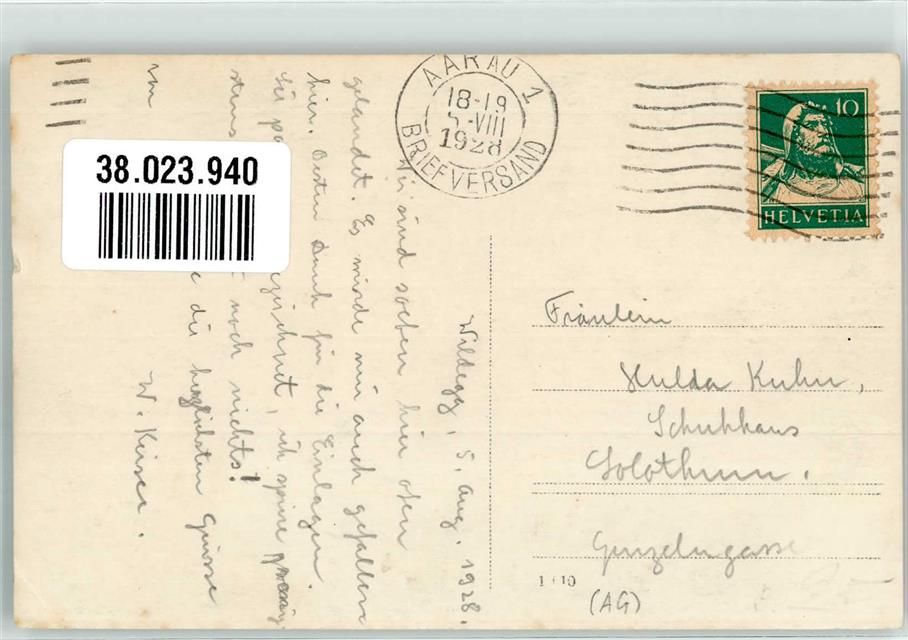 AARAU 1
18-19
5.VIII
1928
BRIEFVERSAND
10
HELVETIA
38.023.940
Wildegg, 5. Aug. 1928.
Wir sind soeben hier oben
gelandet. Es würde mir auch gefallen
hier. Besten Dank für die Einlagen.
ich spüre
noch nichts!
die herzlichsten Grüsse
W. Keiser.
Fräulein
Hulda Kuhn,
Schuhhaus
Solothurn.
1110
(AG)